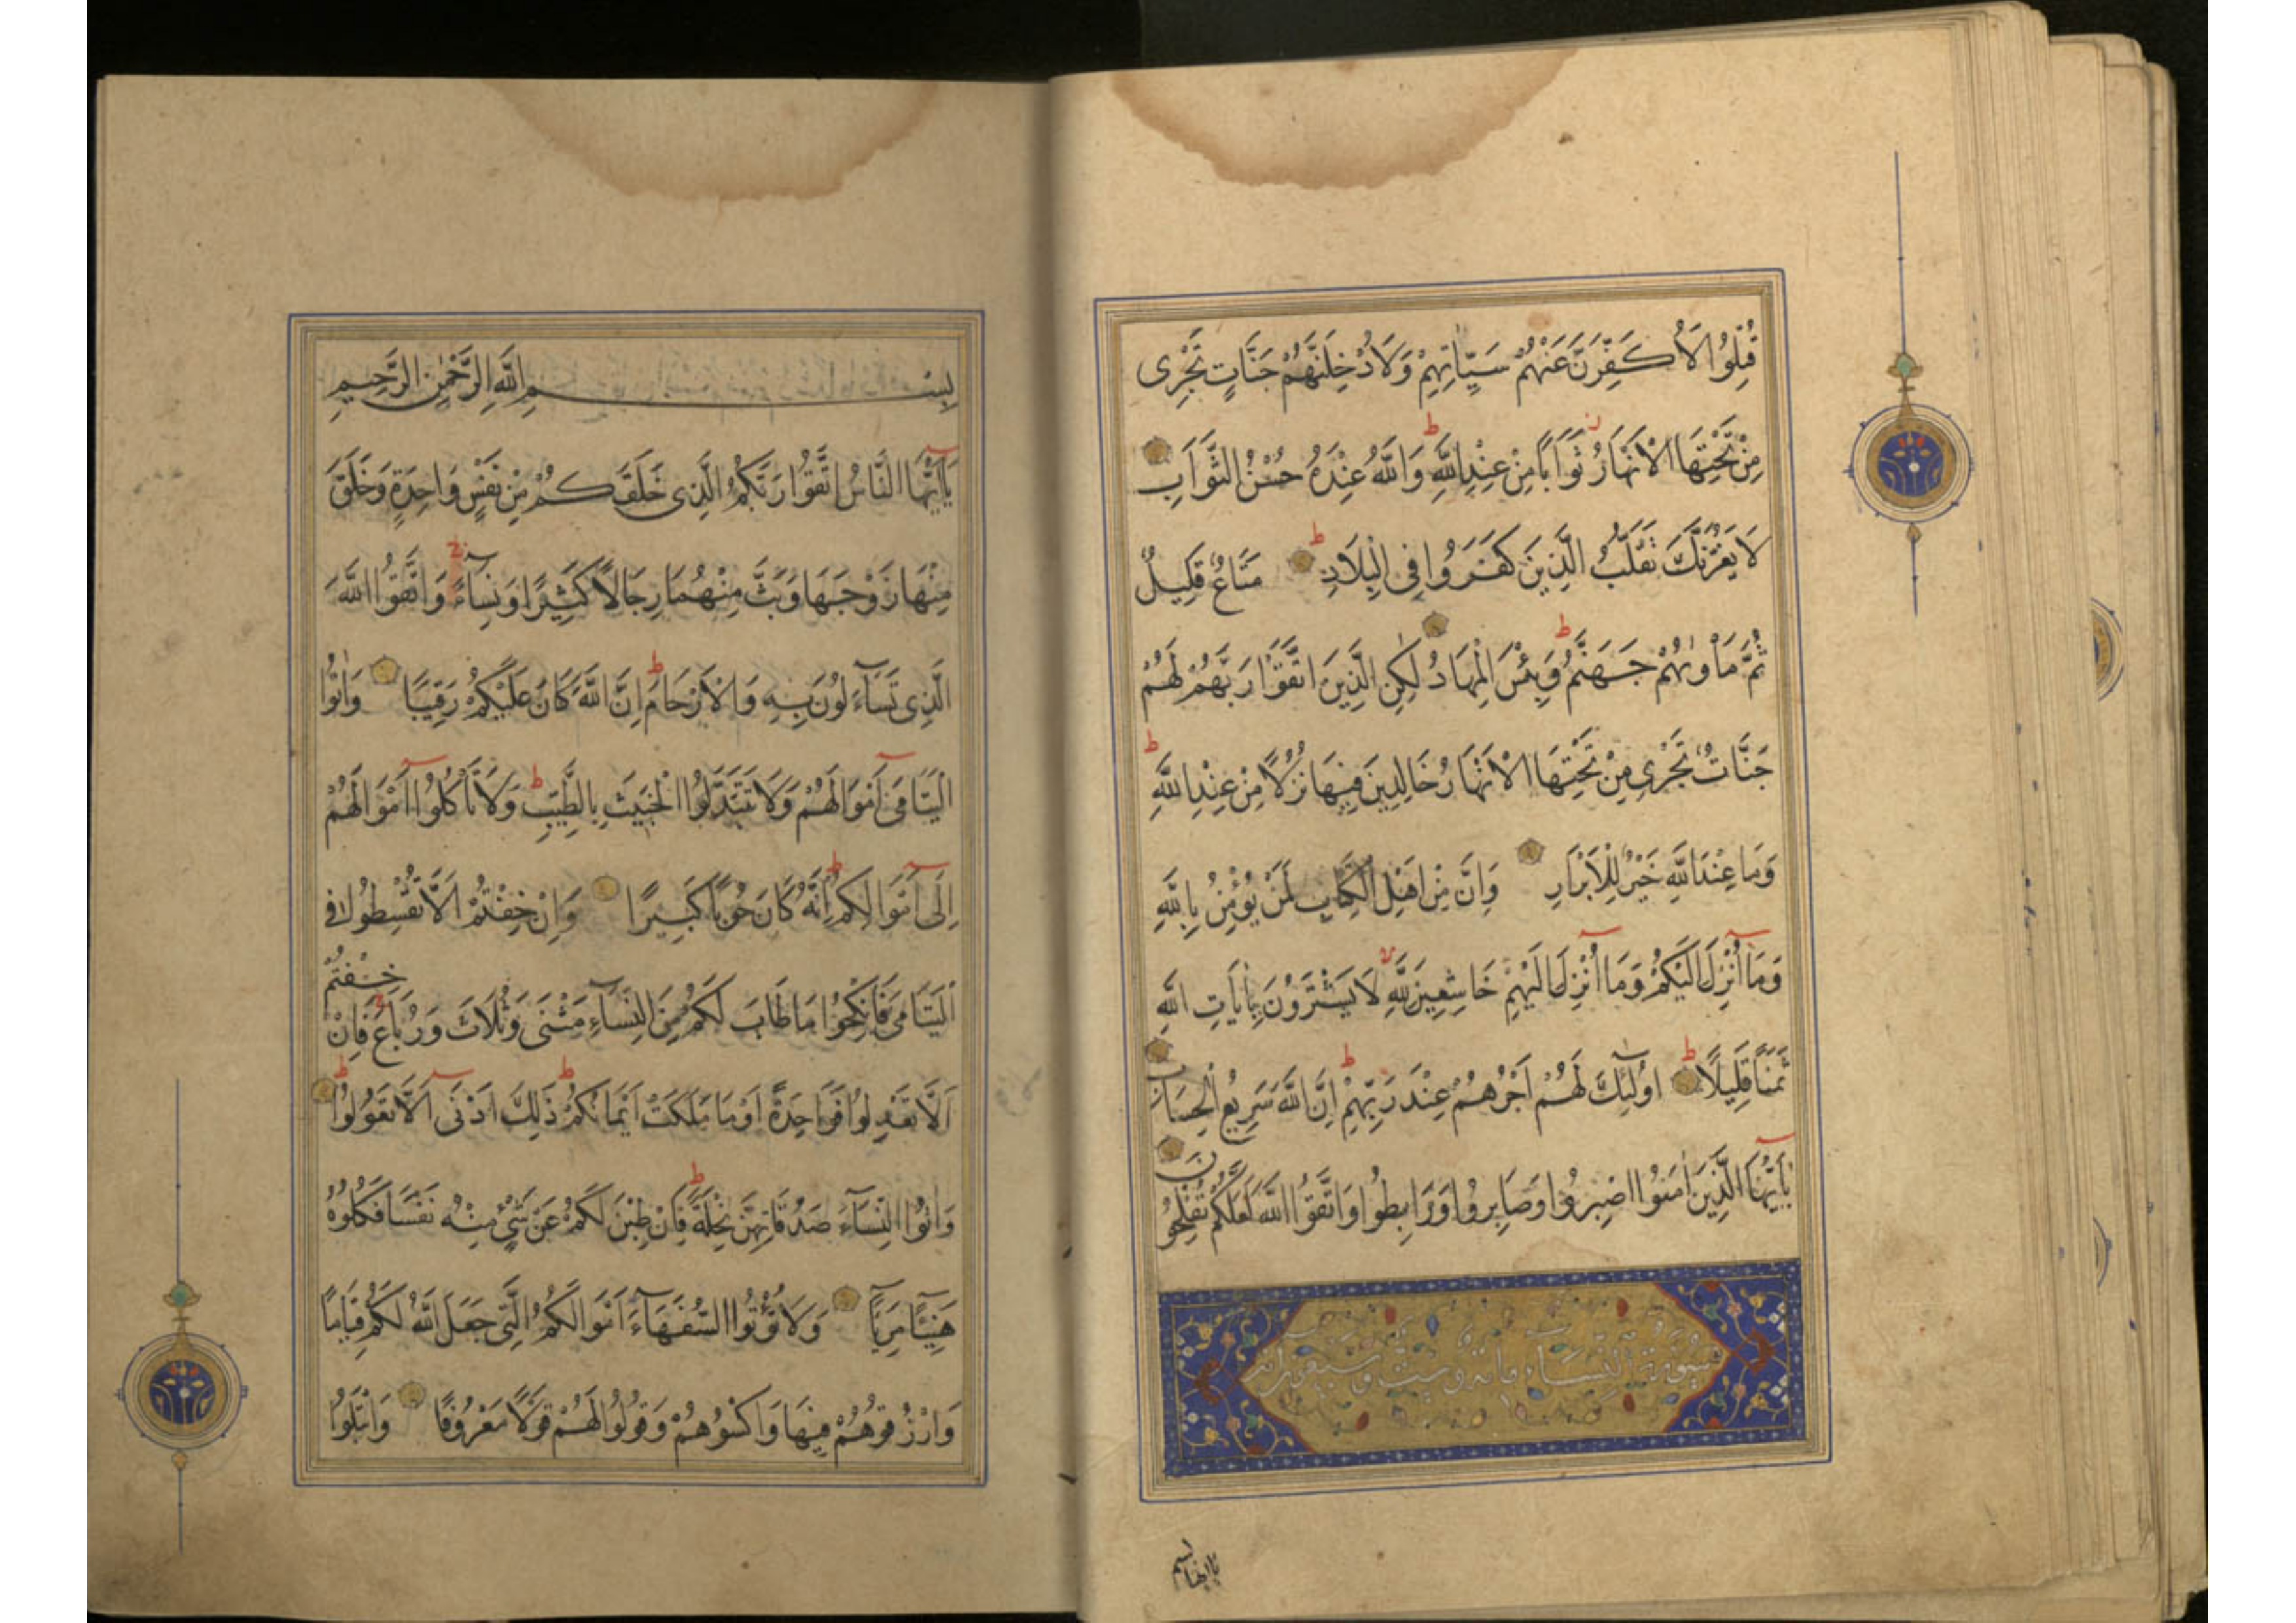 قُتِلُوا لَأُكَفِّرَنَّ عَنْهُمْ سَيِّاٰتِهِمْ وَلَاُدْخِلَنَّهُمْ جَنَّاتٍ تَجْرِى
مِنْ تَحْتِهَا الْاَنْهَارُ ثَوَابًا مِنْ عِنْدِ اللَّهِ ط وَاللَّهُ عِنْدَهُ حُسْنُ الثَّوَابِ
لَا يَغُرَّنَّكَ تَقَلُّبُ الَّذِينَ كَفَرُوا فِى الْبِلَادِ ط مَتَاعٌ قَلِيلٌ
ثُمَّ مَأْوٰيهُمْ جَهَنَّمُ ط وَبِئْسَ الْمِهَادُ لٰكِنِ الَّذِينَ اتَّقَوْا رَبَّهُمْ لَهُمْ
جَنَّاتٌ تَجْرِى مِنْ تَحْتِهَا الْاَنْهَارُ خَالِدِينَ فِيهَا نُزُلًا مِنْ عِنْدِ اللَّهِ ط
وَمَا عِنْدَ اللَّهِ خَيْرٌ لِلْاَبْرَارِ وَاِنَّ مِنْ اَهْلِ الْكِتَابِ لَمَنْ يُؤْمِنُ بِاللَّهِ
وَمَا أُنْزِلَ اِلَيْكُمْ وَمَا أُنْزِلَ اِلَيْهِمْ خَاشِعِينَ لِلَّهِ لا لَا يَشْتَرُونَ بِاٰيَاتِ اللَّهِ
ثَمَنًا قَلِيلًا ط اُولٰئِكَ لَهُمْ اَجْرُهُمْ عِنْدَ رَبِّهِمْ ط اِنَّ اللَّهَ سَرِيعُ الْحِسَابِ
يَا اَيُّهَا الَّذِينَ اٰمَنُوا اصْبِرُوا وَصَابِرُوا وَرَابِطُوا وَاتَّقُوا اللَّهَ لَعَلَّكُمْ تُفْلِحُونَ
سُورَةُ النِّسَاءِ مائة وست وسبعون اية
بسم
يا ايها
بِسْمِ اللَّهِ الرَّحْمٰنِ الرَّحِيمِ
يَا اَيُّهَا النَّاسُ اتَّقُوا رَبَّكُمُ الَّذِى خَلَقَكُمْ مِنْ نَفْسٍ وَاحِدَةٍ وَخَلَقَ
مِنْهَا زَوْجَهَا وَبَثَّ مِنْهُمَا رِجَالًا كَثِيرًا وَنِسَاءً ج وَاتَّقُوا اللَّهَ
الَّذِى تَسَاءَلُونَ بِهِ وَالْاَرْحَامَ ط اِنَّ اللَّهَ كَانَ عَلَيْكُمْ رَقِيبًا وَاٰتُوا
الْيَتَامَى اَمْوَالَهُمْ وَلَا تَتَبَدَّلُوا الْخَبِيثَ بِالطَّيِّبِ ط وَلَا تَأْكُلُوا اَمْوَالَهُمْ
اِلَى اَمْوَالِكُمْ ط اِنَّهُ كَانَ حُوبًا كَبِيرًا وَاِنْ خِفْتُمْ اَلَّا تُقْسِطُوا فِى
الْيَتَامَى فَانْكِحُوا مَا طَابَ لَكُمْ مِنَ النِّسَاءِ مَثْنَى وَثُلَاثَ وَرُبَاعَ ج فَاِنْ خِفْتُمْ
اَلَّا تَعْدِلُوا فَوَاحِدَةً اَوْ مَا مَلَكَتْ اَيْمَانُكُمْ ط ذَلِكَ اَدْنَى اَلَّا تَعُولُوا ط
وَاٰتُوا النِّسَاءَ صَدُقَاتِهِنَّ نِحْلَةً ط فَاِنْ طِبْنَ لَكُمْ عَنْ شَىْءٍ مِنْهُ نَفْسًا فَكُلُوهُ
هَنِيئًا مَرِيئًا وَلَا تُؤْتُوا السُّفَهَاءَ اَمْوَالَكُمُ الَّتِى جَعَلَ اللَّهُ لَكُمْ قِيَامًا
وَارْزُقُوهُمْ فِيهَا وَاكْسُوهُمْ وَقُولُوا لَهُمْ قَوْلًا مَعْرُوفًا وَابْتَلُوا